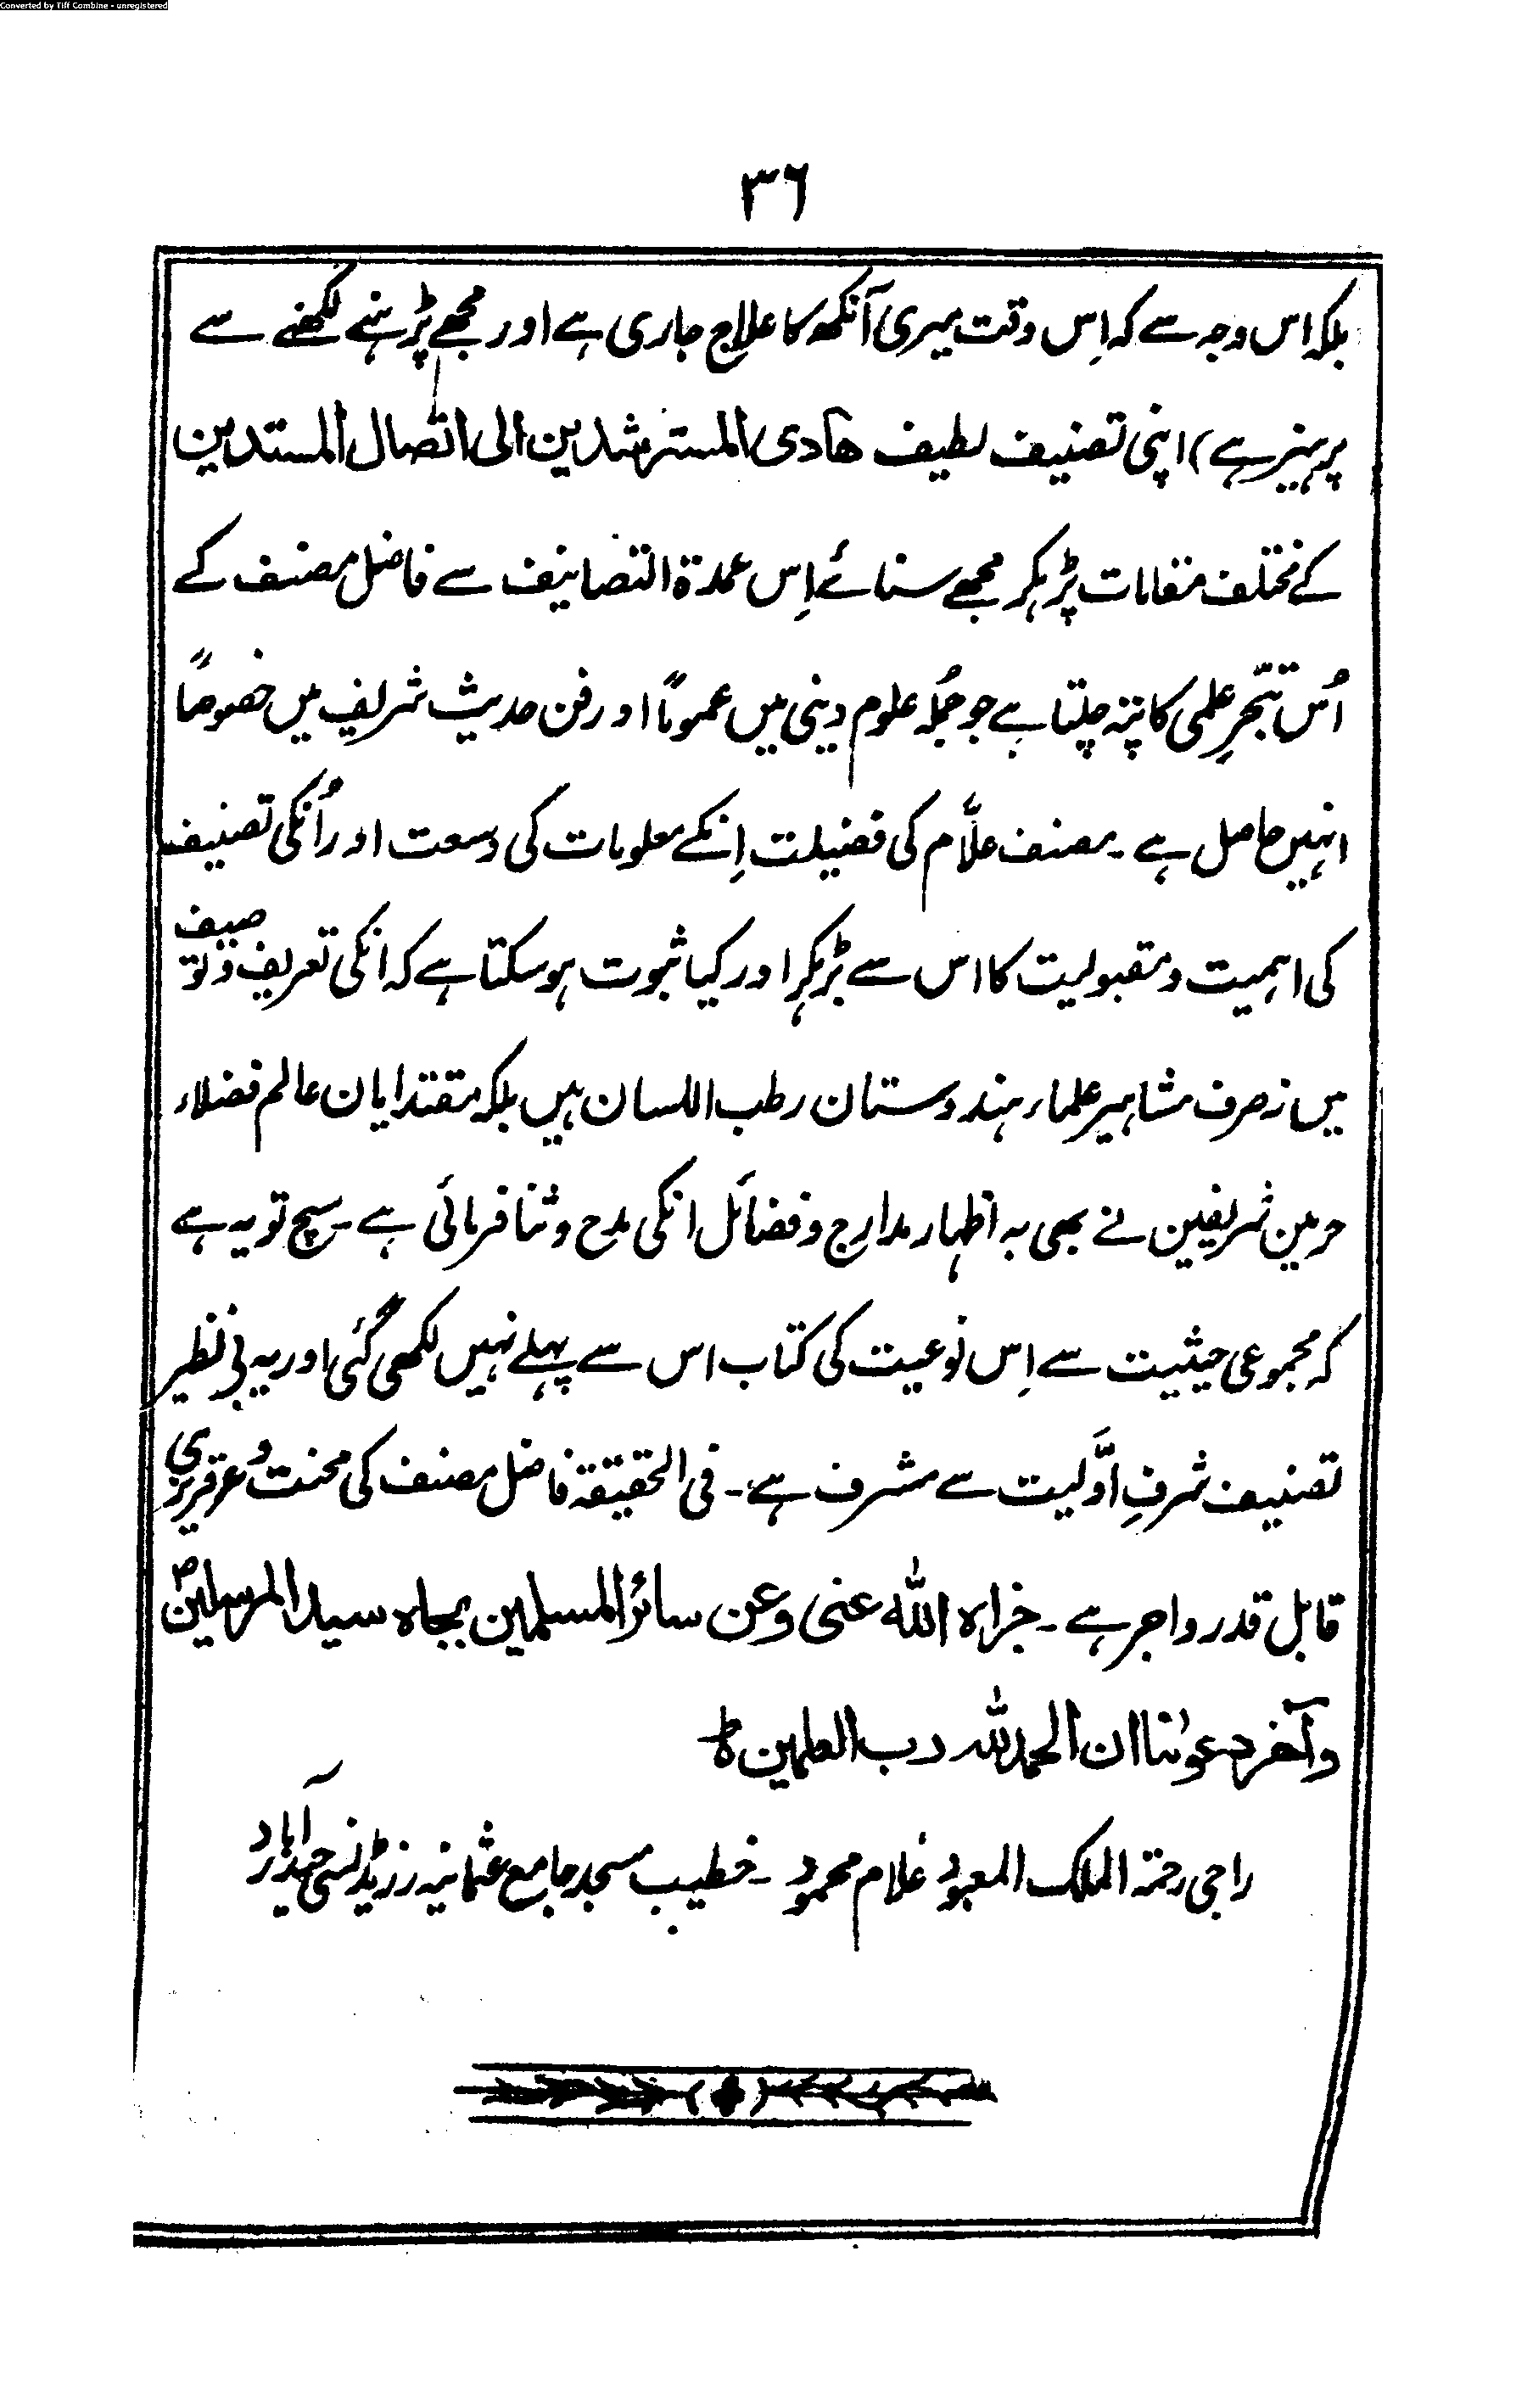 Converted by Tiff Combine - unregistered
۳۶
بلکہ اس وجہ سے کہ اِس وقت میری آنکھ کا علاج جاری ہے اور مجھے پڑہنے لکھنے سے
پرہیز ہے) اپنی تصنیف لطیف ھادی المسترشدین الی اتصال المسندین
کے مختلف مقامات پڑہکر مجھے سنائے اِس عمدۃ التصانیف سے فاضل مصنف کے
اُس تبحّرِ علمی کا پتہ چلتا ہے جو جُملہ علوم دینی میں عموماً اور فن حدیث شریف میں خصوصاً
انہیں حاصل ہے ۔ مصنف علّام کی فضیلت اِنکے معلومات کی وسعت اور اُنکی تصنیف
کی اہمیت و مقبولیت کا اس سے بڑہکر اور کیا ثبوت ہو سکتا ہے کہ انکی تعریف و توصیف
میں نہ صرف مشاہیر علماء ہندوستان رطب اللسان ہیں بلکہ مقتدایان عالم فضلاء
حرمین شریفین نے بھی بہ اظہار مدارج و فضائل انکی مدح و ثنا فرمائی ہے ۔ سچ تو یہ ہے
کہ مجموعی حیثیت سے اِس نوعیت کی کتاب اس سے پہلے نہیں لکھی گئی اور یہ بے نظیر
تصنیف شرفِ اوَّلیت سے مشرف ہے ۔ فی الحقیقۃ فاضل مصنف کی محنت و عرقریزی
قابل قدر و اجر ہے ۔ جزاہ اللہ عنی وعن سائر المسلمین بجاہ سید المرسلین ؐ
وآخر دعوٰنا ان الحمد للہ رب العلمین ہ
راجی رحمۃ الملک المعبود غلام محمود ۔ خطیب مسجد جامع عثمانیہ رزیڈنسی حیدرآباد